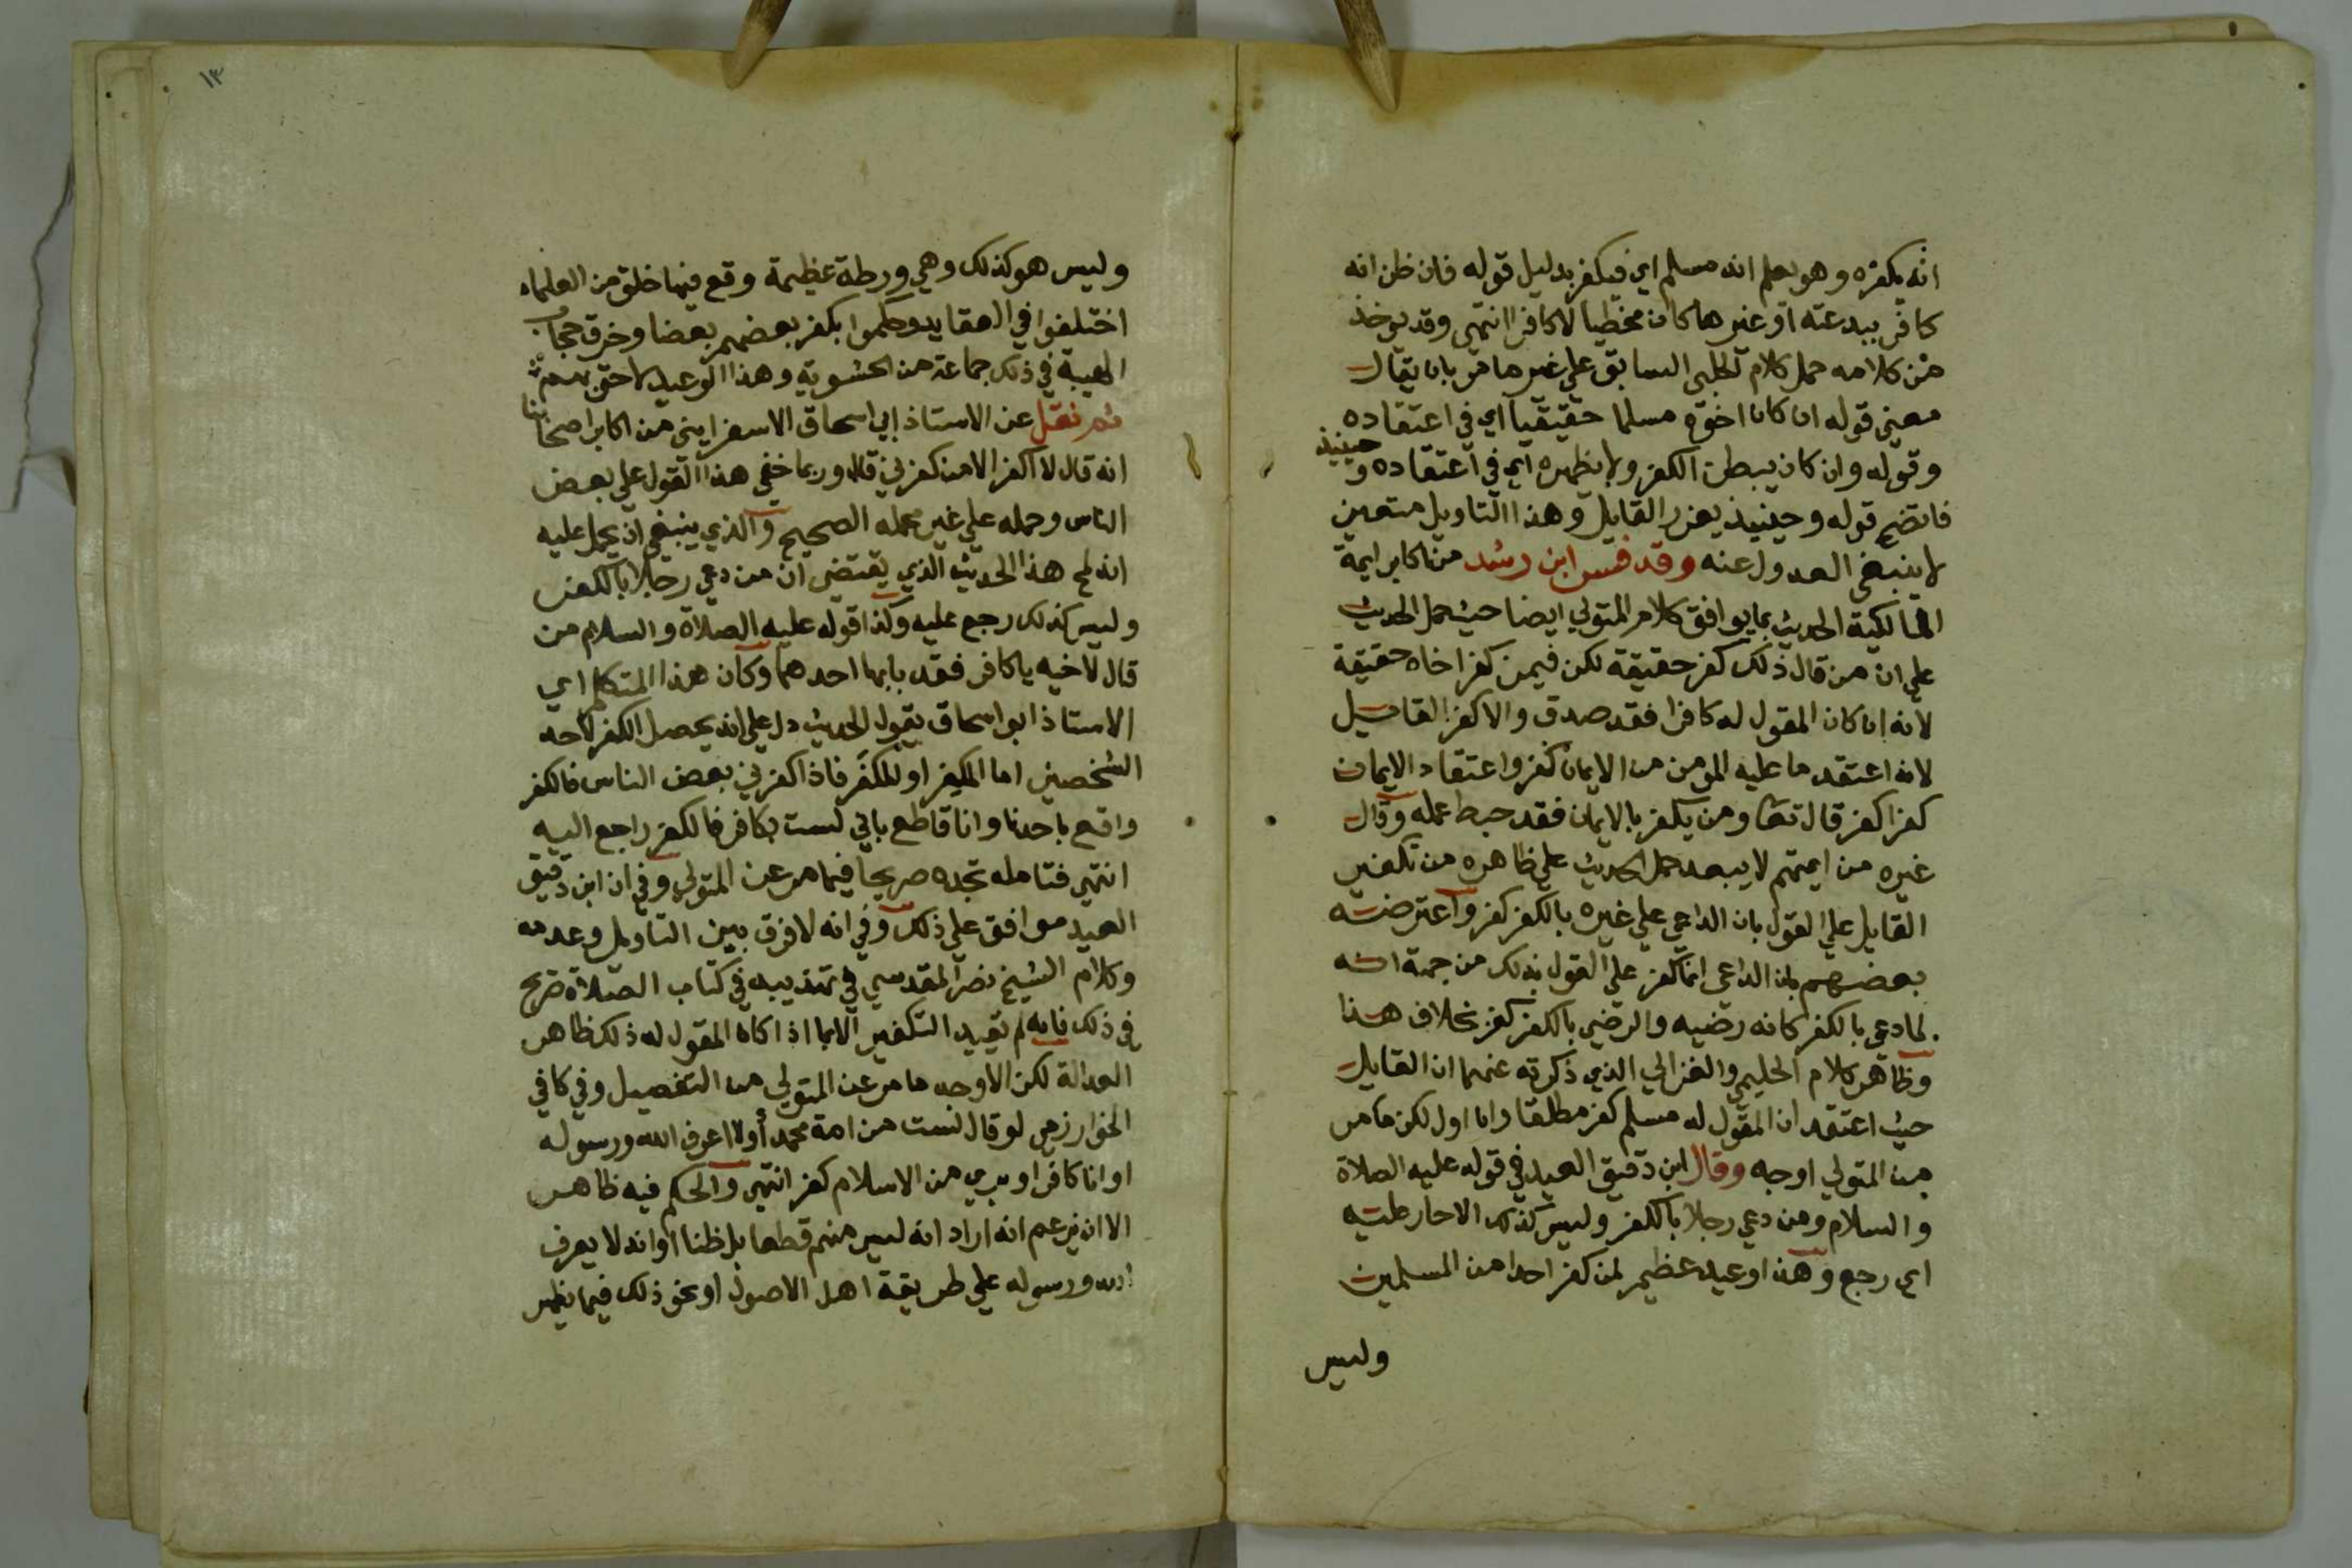 انه يكفره وهو يعلم انه مسلم اي فيكفر بدليل قوله فان ظن انه
كافر ببدعته او غيرها كان مخطيا لا كافرا انتهى وقد يوخذ
من كلامه حمل كلام الحليمي السابق علي غير ما مر بان يقال
معني قوله ان كان اخوه مسلما حقيقيا اي في اعتقاده
وقوله وان كان يبطن الكفر ولا يظهره اي في اعتقاده وحينيذ
فاتضح قوله وحينيذ يعزر القايل وهذا التاويل متعين
لا ينبغي العدول عنه وقد فسر ابن رشد من اكابر ايمة
المالكية الحديث بما يوافق كلام المتولي ايضا حيث حمل الحديث
علي ان من قال ذلك كفر حقيقة لكن فيمن كفر اخاه حقيقة
لانه ان كان المقول له كافرا فقد صدق والا كفر القايل
لانه اعتقد ما عليه المومن من الايمان كفر واعتقاد الايمان
كفرا كفر قال تعا ومن يكفر بالايمان فقد حبط عمله وقال
غيره من ايمتهم لا يبعد حمل الحديث علي ظاهره من تكفير
القايل علي القول بان الداعي علي غيره بالكفر كفر واعترضته
بعضهم بان الداعي انما كفر علي القول بذلك من جهة انه
لما دعي بالكفر كانه رضيه والرضي بالكفر كفر بخلاف هذا
وظاهر كلام الحليمي والغزالي الذي ذكرته عنهما ان القايل
حيث اعتقد ان المقول له مسلم كفر مطلقا وان اول لكن ما مر
عن المتولي اوجه وقال ابن دقيق العيد في قوله عليه الصلاة
والسلام ومن دعي رجلا بالكفر وليس كذلك الا حار عليه
اي رجع وهذا وعيد عظيم لمن كفر احدا من المسلمين
وليس
١٣
وليس هو كذلك وهي ورطة عظيمة وقع فيها خلق من العلماء
اختلفوا في العقايد وحكموا بكفر بعضهم بعضا وخرق حجاب
الهيبة في ذلك جماعة من الحشوية وهذا الوعيد لاحق بهم
ثم نقل عن الاستاذ ابي اسحاق الاسفرايني من اكابر اصحابنا
انه قال لا اكفر الا من كفرني قال وربما خفي هذا القول علي بعض
الناس وحمله علي غير محمله الصحيح والذي ينبغي ان يحمل عليه
انه لمح هذا الحديث الذي يقتضي ان من دعي رجلا بالكفر
وليس كذلك رجع عليه وكذا قوله عليه الصلاة والسلام من
قال لاخيه يا كافر فقد با بها احدهما وكان هذا المتكلم اي
الاستاذ ابو اسحاق يقول الحديث دل علي انه يحصل الكفر لاحد
الشخصين اما المكفر او المكفر فاذا كفرني بعض الناس فالكفر
واقع باحدنا وانا قاطع باني لست بكافر فالكفر راجع اليه
انتهى فتامله تجده صريحا فيما مر عن المتولي وفي ان ابن دقيق
العيد موافق علي ذلك وفي انه لا فرق بين التاويل وعدمه
وكلام الشيخ نصر المقدسي في تهذيبه في كتاب الصلاة صريح
في ذلك فانه لم يقيد التكفير الا بما اذا كان المقول له ذلك ظاهر
العدالة لكن الاوجه ما مر عن المتولي من التفصيل وفي كافي
الخوارزمي لو قال لست من امة محمد أو لا اعرف الله ورسوله
او انا كافر او بري من الاسلام كفر انتهى والحكم فيه ظاهر
الا ان يزعم انه اراد انه ليس منهم قطعا بل ظنا او انه لا يعرف
الله ورسوله علي طريقة اهل الاصول او نحو ذلك فيما يظهر